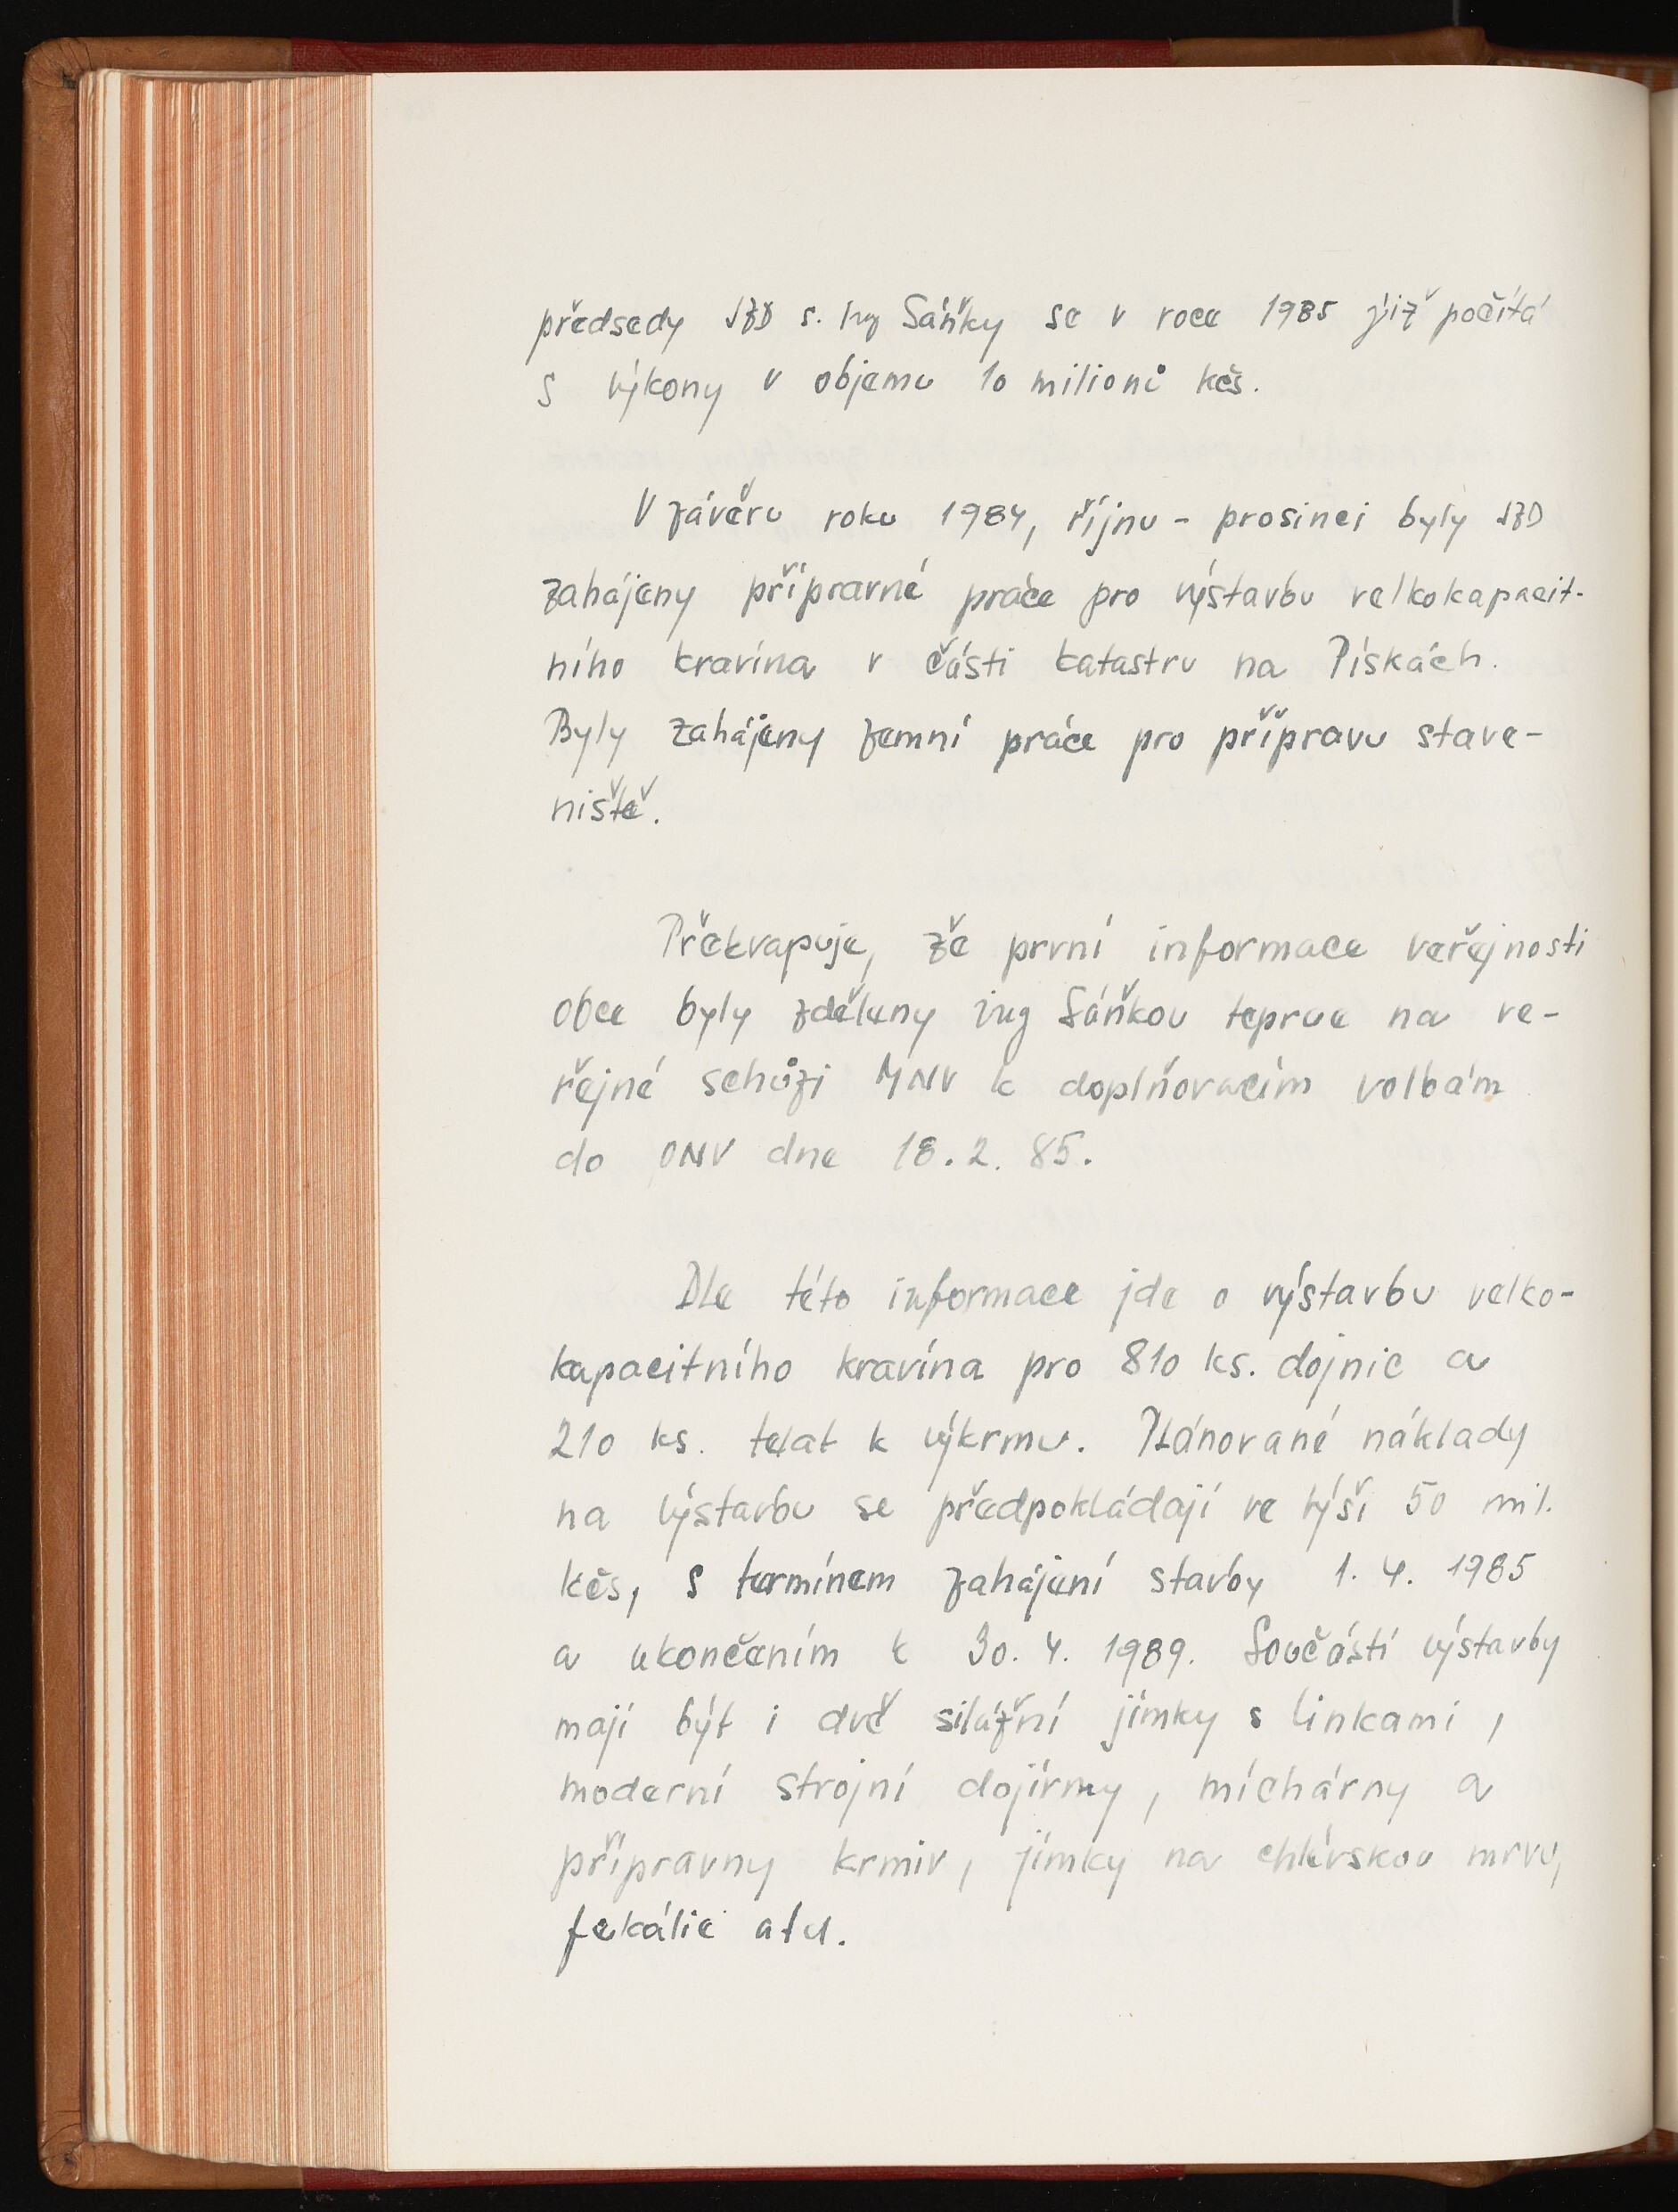 předsedy JZD s. Ing Sáňky se v roce 1985 již počítá
s výkony v objemu 10 milionů kčs.
V závěru roku 1984, říjnu - prosinci byly JZD
zahájeny přípravné práce pro výstavbu velkokapacit-
ního kravína v části katastru na Pískách.
Byly zahájeny zemní práce pro přípravu stave-
niště.
Překvapuje, že první informace veřejnosti
obce byly zděleny ing Sáňkou teprve na ve-
řejné schůzi MNV k doplňovacím volbám
do ONV dne 18. 2. 85.
Dle této informace jde o výstavbu velko-
kapacitního kravína pro 810 ks. dojnic a
210 ks. telat k výkrmu. Plánované náklady
na výstavbu se předpokládají ve výši 50 mil.
kčs, s termínem zahájení stavby 1. 4. 1985
a ukončením k 30. 4. 1989. Součástí výstavby
mají být i dvě silážní jímky s linkami,
moderní strojní dojírny, míchárny a
přípravny krmiv, jímky na chlévskou mrvu,
fekálie atd.